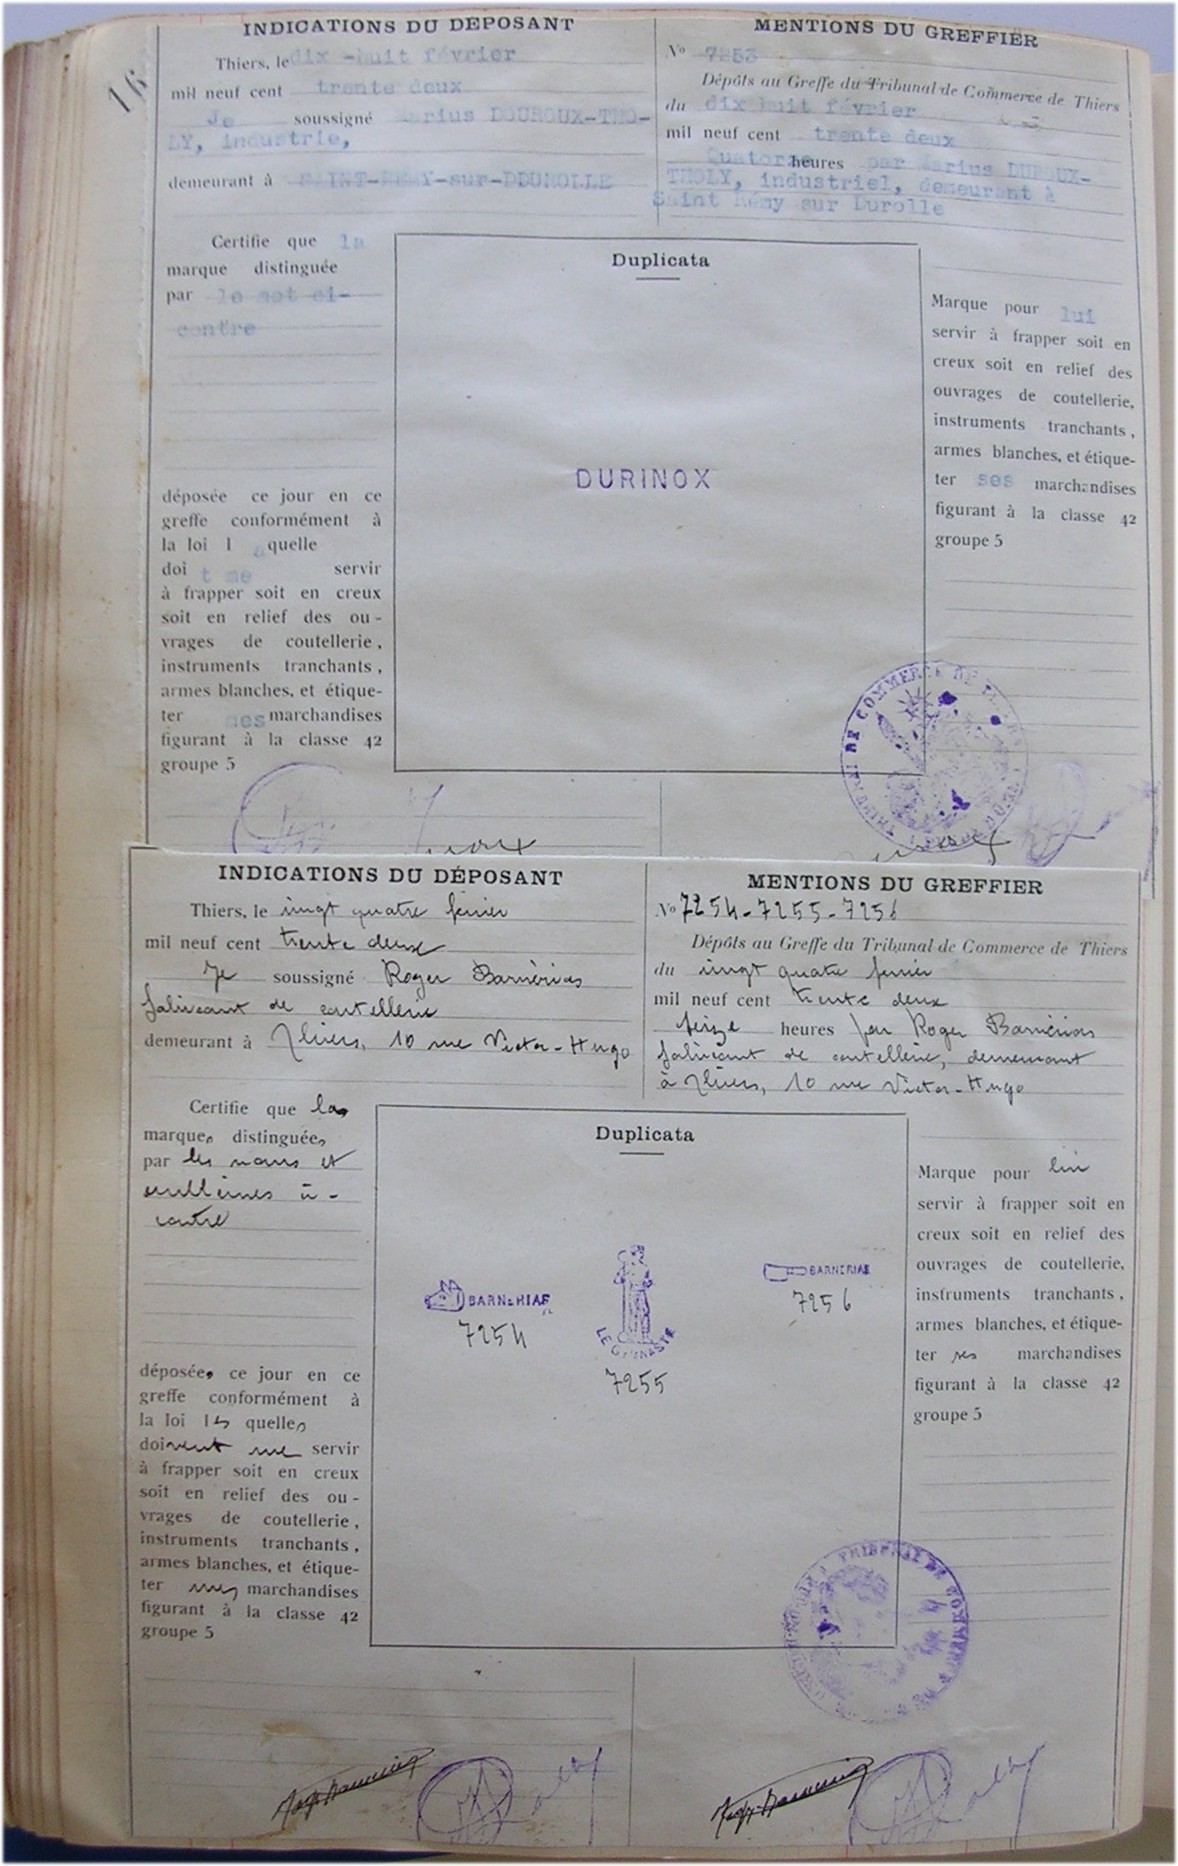 16
INDICATIONS DU DÉPOSANT
Thiers, le dix -huit février
mil neuf cent trente deux
Je soussigné Marius DOUROUX-THO-
LY, industrie,
demeurant à SAINT-REMY-sur-DDUROLLE
Certifie que la
marque distinguée
par le mot ci-
contre
déposée ce jour en ce
greffe conformément à
la loi l a quelle
doi t me servir
à frapper soit en creux
soit en relief des ou-
vrages de coutellerie,
instruments tranchants,
armes blanches, et étique-
ter mes marchandises
figurant à la classe 42
groupe 5
MENTIONS DU GREFFIER
No 7253
Dépôts au Greffe du Tribunal de Commerce de Thiers
du dix huit février
mil neuf cent trente deux
Quatorze heures par Marius DUROUX-
THOLY, industriel, demeurant à
Saint Rémy sur Durolle
Duplicata
DURINOX
Marque pour lui
servir à frapper soit en
creux soit en relief des
ouvrages de coutellerie,
instruments tranchants,
armes blanches, et étique-
ter ses marchandises
figurant à la classe 42
groupe 5
DE COMMERCE DE
INDICATIONS DU DÉPOSANT
Thiers, le vingt quatre février
mil neuf cent trente deux
Je soussigné Roger Barnérias
fabricant de coutellerie
demeurant à Thiers, 10 rue Victor-Hugo
Certifie que les
marques distinguées
par les noms et
emblèmes ci-
contre
déposées ce jour en ce
greffe conformément à
la loi les quelles
doivent me servir
à frapper soit en creux
soit en relief des ou-
vrages de coutellerie,
instruments tranchants,
armes blanches, et étique-
ter mes marchandises
figurant à la classe 42
groupe 5
MENTIONS DU GREFFIER
No 7254-7255-7256
Dépôts au Greffe du Tribunal de Commerce de Thiers
du vingt quatre février
mil neuf cent trente deux
seize heures par Roger Barnérias
fabricant de coutellerie, demeurant
à Thiers, 10 rue Victor-Hugo
Duplicata
BARNERIAS
7254
LE GYMNASTE
7255
BARNERIAS
7256
Marque pour lui
servir à frapper soit en
creux soit en relief des
ouvrages de coutellerie,
instruments tranchants,
armes blanches, et étique-
ter ses marchandises
figurant à la classe 42
groupe 5
TRIBUNAL DE COMMERCE